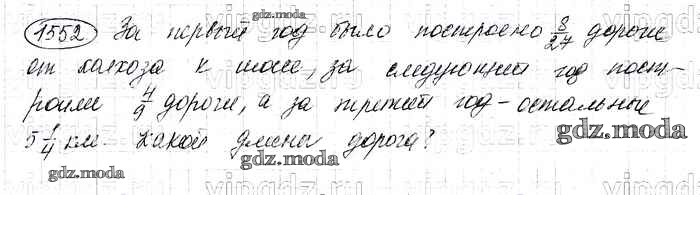 1552 За первый год было построено 8/27 дороги
от колхоза к шоссе, за следующий год пост-
роили 4/9 дороги, а за третий год - остальные
5 1/4 км. Какой длины дорога?
gdz.moda
gdz.moda
gdz.moda
gdz.moda
vipgdz
vipgdz